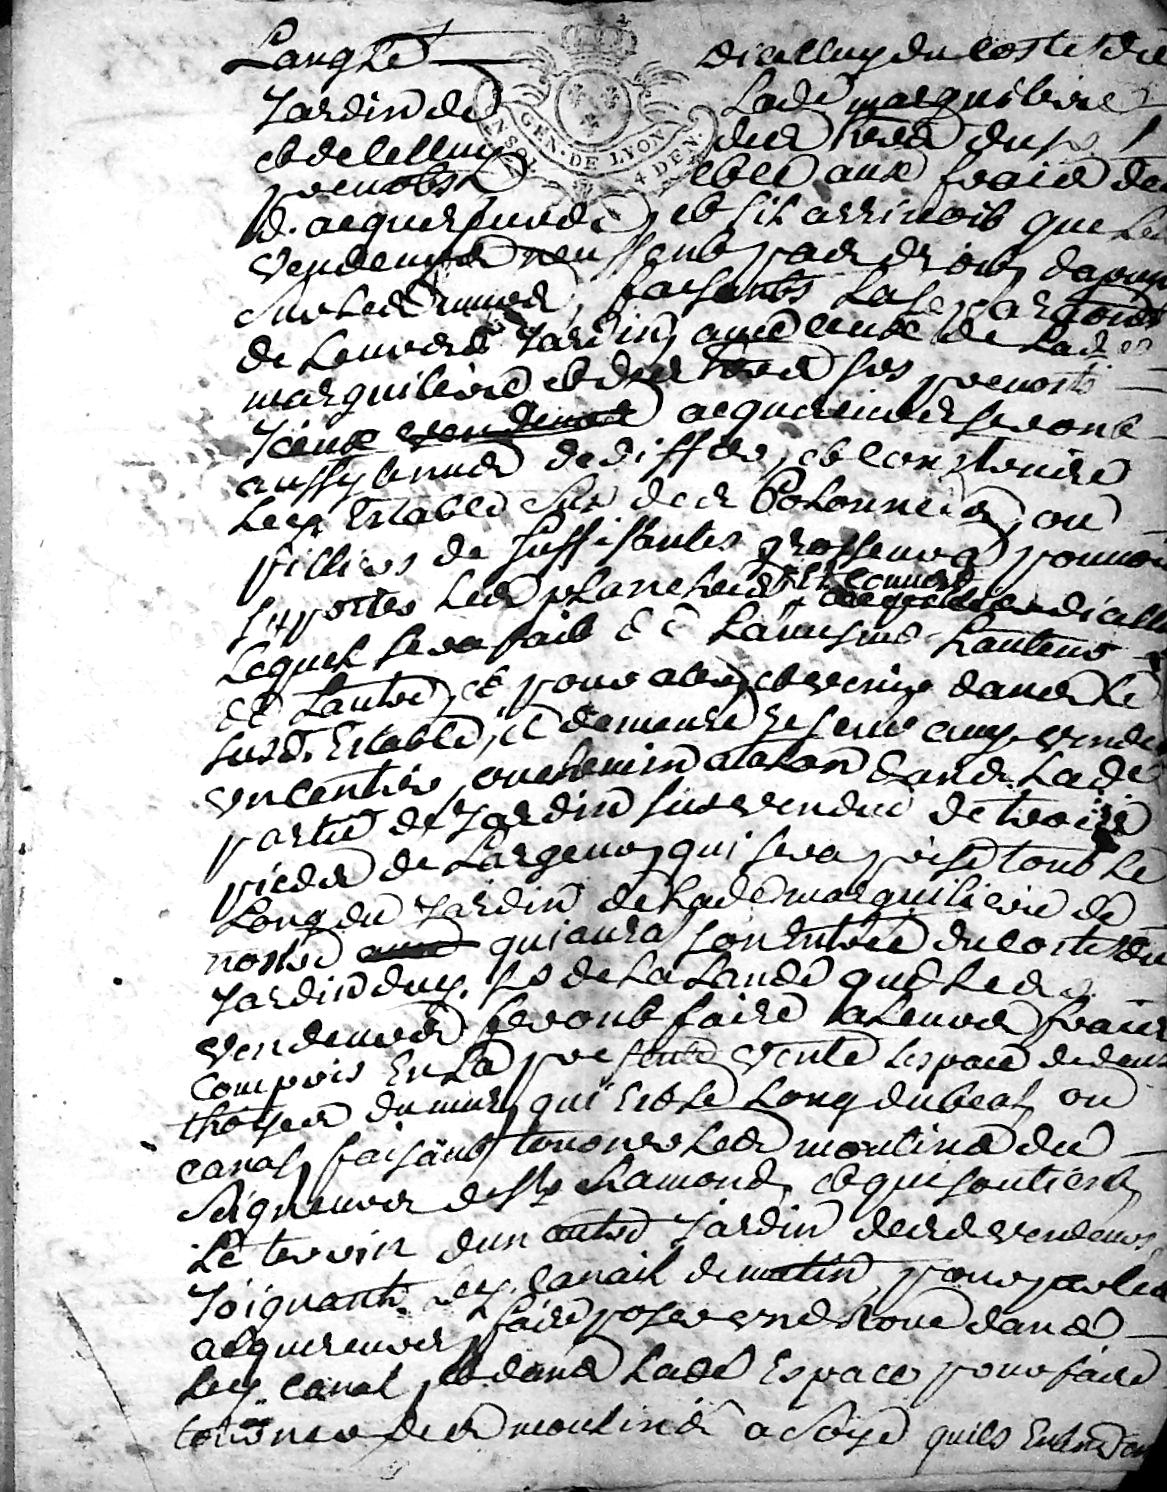 Langle dicelluy du costé du
Jardin de lade marguiliere
et de celluy des
GEN. DE LYON
4 DEN.
prenobst et ce aux fraix des
d. acquereurs, et sil arrivoit que les
vendeurs neussent pas droit dapuyer
sur les murs, faisants la separation
de leurd Jardin, avec ceux de lade
marguiliere et des srs prenost
Iceux vendeurs acquereurs seront
aussy tenus dediffier, et construire
led. Establ sur des Colonnes, ou
pilliers de suffisantes grosseurs pour
supporter les planchers et couvert dicelluy
lequel sera fait de la mesme hauteur
de lautre, et pour aller et venir dans le
susd. Establ, il demeure reservé auxd. vendeurs
un centier, ou chemin a talon dans lade
partie de Jardin sus vendue de trois
pieds de largeur, qui sera prise tout le
long du Jardin de lade marguiliere de
nostre qui aura son Entrée du costé du
Jardin dud. sr de la Lande que lesd.
vendeurs feront faire a leurs fraix
compris En la presente vente lespace de deux
thoyses du mur, qui Est le long du beal, ou
canal, faisant tourner les moulins du
Seigneur de St chamond, et qui soutient
le terrin dun autre Jardin desd vendeurs
Joignant led. canail de matin, pour par les
acquereurs, faire poser une Roue dans
led. canal, et dans lade Espace pour faire
tourner des moulins a soye quils Entendent